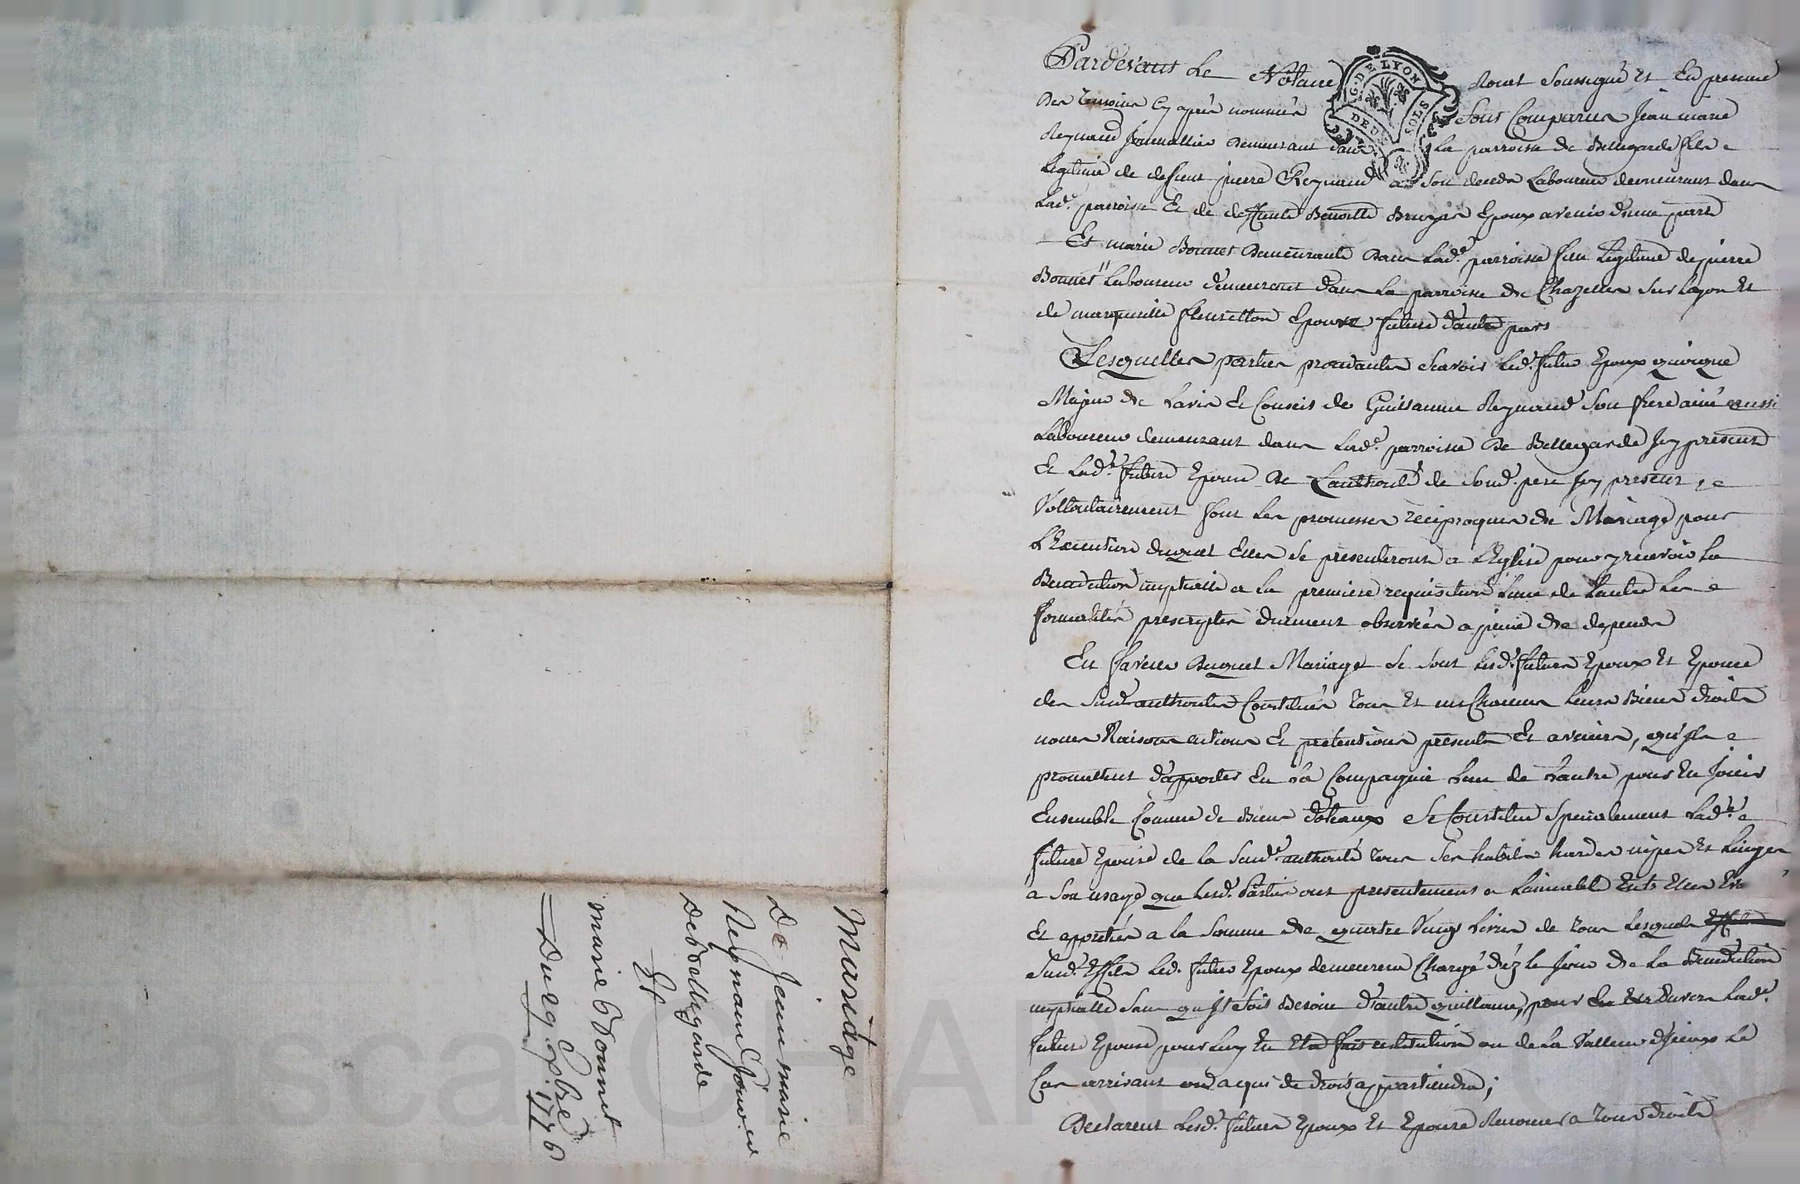 Mariage
De Jean marie
Reynaud Jour.er
de Bellegarde
Et
marie Bonnet
Du 29 7bre 1776
G. DE LYON
DEUX SOLS
Pardevant Le Notaire Royal Soussigné Et En presence
des temoins Cy après nommés Sont Comparus Jean marie
Reynaud Journallier demeurant dans La parroisse de Bellegarde fils
Legitime de deffunt pierre Reynaud a son deceds Laboureur demeurant dans
Lad.e parroisse Et de deffunte Benoitte Bruyas Epoux avenir d'une part
Et marie Bonnet demeurante dans Lad.e parroisse fille Legitime de pierre
Bonnet Laboureur demeurant dans La parroisse de Chazelles Sur Layon Et
de marguerite fleuretton Epouse future d'autre part
Lesquelles parties procedantes Scavoir Led. futur Epoux quoique
Majeur de Lavis Et Conseil de Guillaume Reynaud Son frere ainé aussi
Laboureur demeurant dans Lad.e parroisse de Bellegarde Icy present
Et Lad.te future Epouse de Lauthorité de Sond. pere Icy present,
Vollontairement font Les promesses reciproques de Mariage pour
L'Execution duquel Elles Se presenteront a L'Eglise pour y recevoir La
Benediction nuptialle a La premiere requisition L'une de L'autre Les
formalités prescriptes duement observées a peine de depends
En faveur duquel Mariage Se Sont Lesd. futurs Epoux Et Epouse
des Susd. authorités Constitués tous Et un Chacun Leurs Biens droits
noms Raisons actions Et pretentions presents Et avenirs, qu'ils
promettent d'apporter En La Compagnie L'un de L'autre pour En Jouir
Ensemble Comme de Biens dotaux Se Constitue Specialement Lad.te
future Epouse de La Susd.e authorité tous Ses habits hardes nipes Et Linges
a Son usage que Lesd. Parties ont presentement a Lamiable Entr Elles
Et appretiés a La Somme de quatre Vingt Livres de tous Lesquels
Susd. Effets Led. futur Epoux demeurera Chargé dèz le Jour de La Benediction
nuptialle Sans qu'il Soit Besoin d'autre quittance, pour Envers Lad.e
future Epouse pour Luy En Etre fait restitution ou de La Valleur d'Iceux Le
Cas arrivant ou a qui de droit appartiendra;
Declarent Lesd. futurs Epoux Et Epouse Renoncer a tous droits